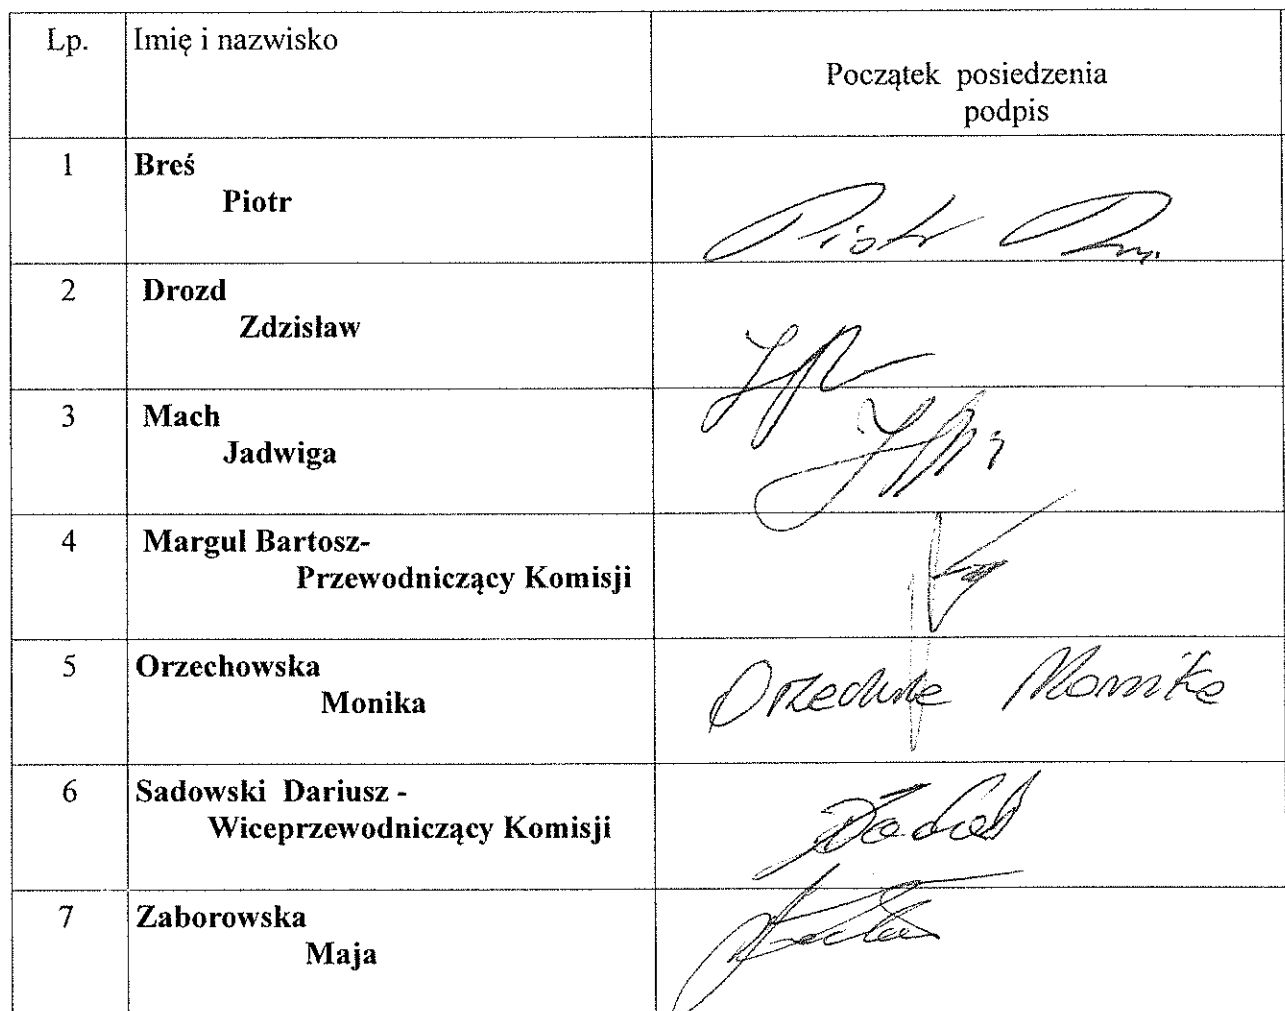 Lp. Imię i nazwisko
Początek posiedzenia
podpis
1 Breś
Piotr
Piotr
2 Drozd
Zdzisław
3 Mach
Jadwiga
4 Margul Bartosz-
Przewodniczący Komisji
5 Orzechowska
Monika
Monika
6 Sadowski Dariusz -
Wiceprzewodniczący Komisji
7 Zaborowska
Maja